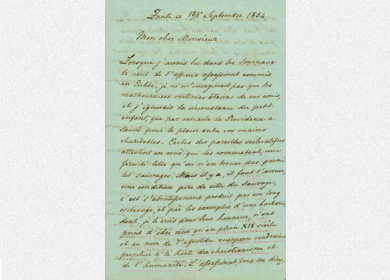 Zante le 19/ Septembre 1854
Mon cher Monsieur
Lorsque j'avais lu dans les Journaux
le récit de l'affreux assassinat commis
en je ne m'imaginais pas que les
malheureuses victimes étaient de vos amis,
et j'ignorais la circonstance du petit
enfant, que par miracle la Providence a
sauvé pour le placer entre vos mains
charitables. Certes des pareilles scélératesses
attestent en ceux qui les commettent, une
férocité telle qu'on n'en trouve pas parmi
les sauvages. Mais il y a, il faut l'avouer,
une condition pire de celle du Sauvage,
c'est l'abrutissement produit par un long
esclavage, et par les exemples d'une barbarie
dont, je le crois pour leur honneur, n'ont
point d'idée ceux qui en plein XIX siècle
et au nom de l'équilibre européen voudraient
perpétuer à la honte du christianisme et
de l'humanité. L'assassinat